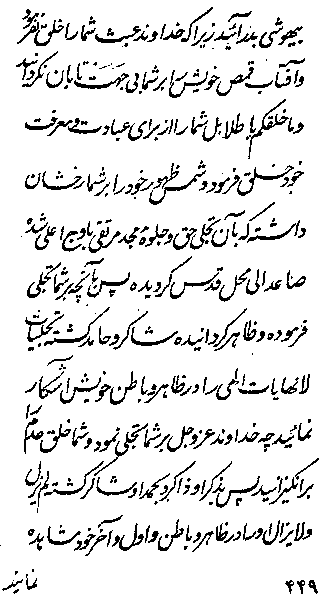 بیهوشی بدر آئید زیرا که خداوند عبث شما را خلق نفرمود
و آفتاب قمص خویش را بر شما بی جهت تابان نگردانید
و ما خلقکم باطلا بل شما را از برای عبادت و معرفت
خود خلق فرمود و شمس ظهور خود را بر شما رخشان
داشته که بآن تجلی حق و جلوهٔ مجد مرتقی باوج اعلی شده
صاعد الی محل قدس گردیده پس بآنچه بر شما تجلی
فرموده و ظاهر گردانیده شاکر و حامد گشته تجلیات
لانهایات الهی را در ظاهر و باطن خویش آشکار
نمائید چه خداوند عز و جل بر شما تجلی نمود و شما خلق عدم را
برانگیزانید پس بذکر او ذاکر و بحمد او شاکر گشته لم یزل
و لایزال او را در ظاهر و باطن و اول و آخر خود مشاهده
نمایند
۴۴۹